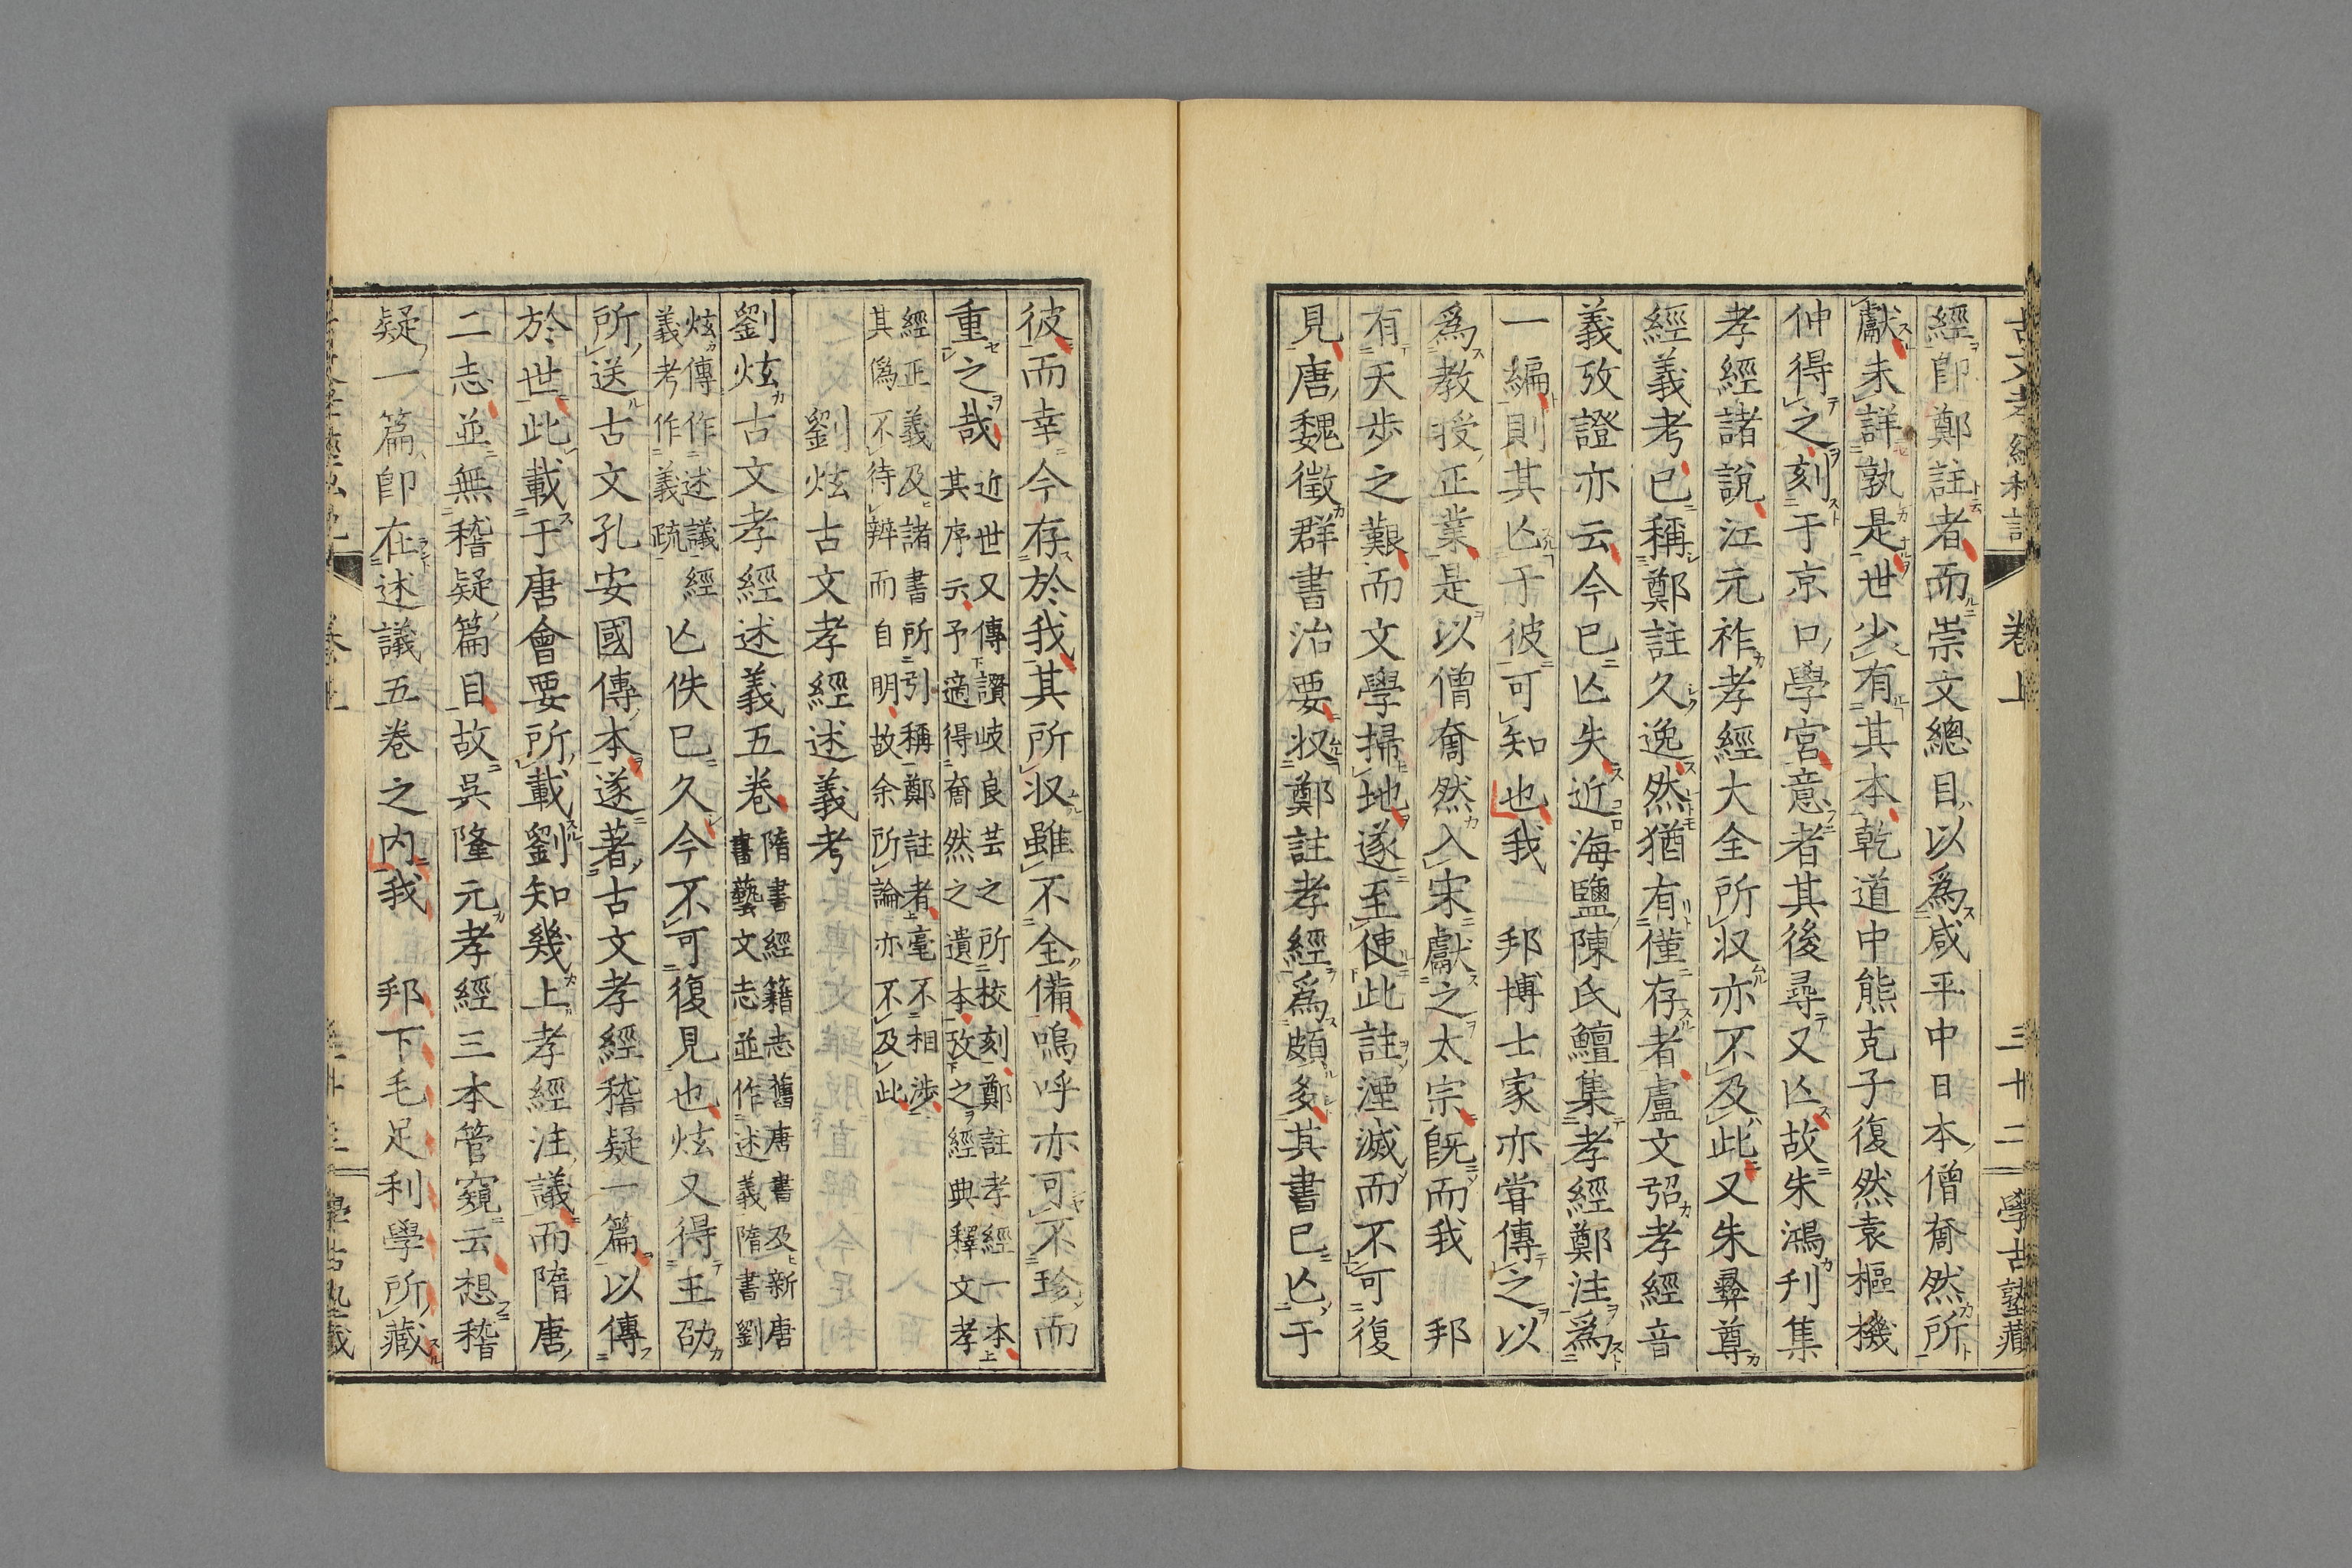 卷上
三十二
學古塾藏
經即鄭註者而崇文總目以爲咸平中日本僧奝然所
獻未詳孰是世少有其本乾道中熊克子復然袁樞機
仲得之刻于京口學宮意者其後尋又亡故朱鴻刋集
孝經諸說江元祚孝經大全所収亦不及此又朱彝尊
經義考已稱鄭註久逸然猶有僅存者盧文弨孝經音
義攷證亦云今已亡失近海鹽陳氏鱣集孝經鄭注爲
一編則其亡于彼可知也我二邦博士家亦甞傳之以
爲教授正業是以僧奝然入宋獻之太宗既而我邦
有天歩之艱而文學掃地遂至使此註湮滅而不可復
見唐魏徵群書治要収鄭註孝經爲頗多其書已亡于
彼而幸今存於我其所収雖不全備嗚呼亦可不珍而
重之哉
近世又傳讚岐良芸之所校刻鄭註孝經一本
其序云予適得奝然之遺本攷之經典釋文孝
經正義及諸書所引稱鄭註者毫不相渉
其僞不待辨而自明故余所論亦不及此
劉炫古文孝經述義考
劉炫古文孝經述義五卷
隋書經籍志舊唐書及新唐
書藝文志並作述義隋書劉
炫傳作述議經
義考作義疏
亡佚已久今不可復見也炫又得王劭
所送古文孔安國傳本遂著古文孝經稽疑一篇以傳
於世此載于唐會要所載劉知幾上孝經注議而隋唐
二志並無稽疑篇目故呉隆元孝經三本管窺云想稽
疑一篇即在述議五卷之内我邦下毛足利學所藏